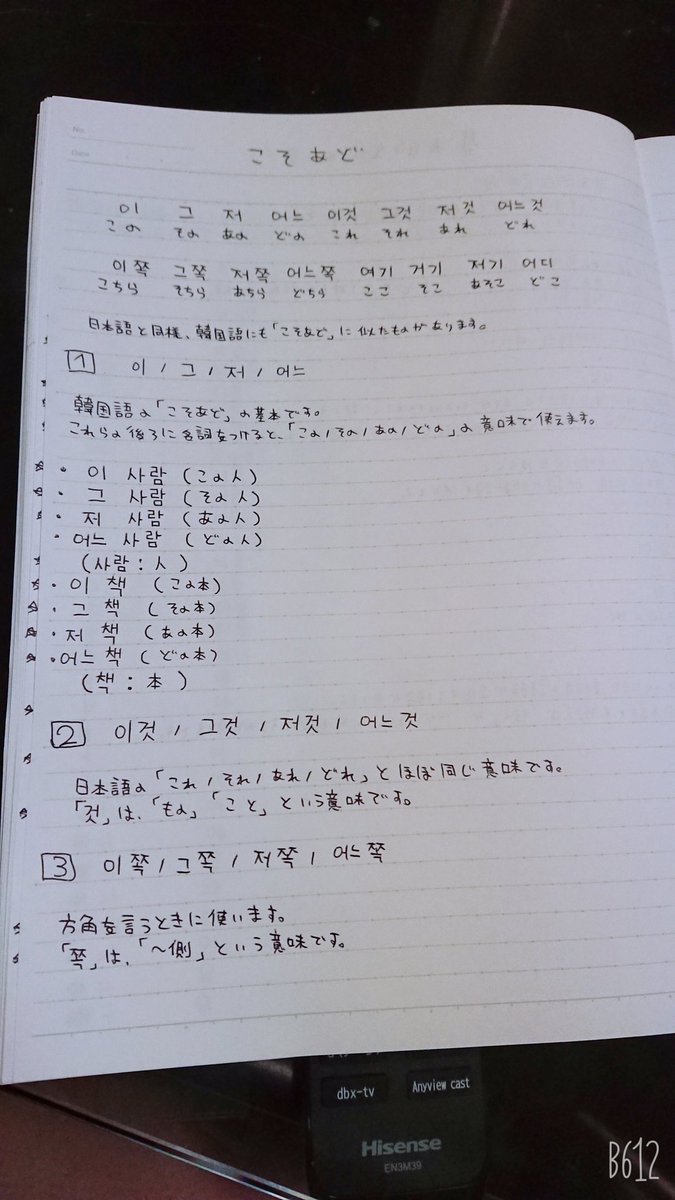 No.
Date
こそあど
이 그 저 어느 이것 그것 저것 어느것
この その あの どの これ それ あれ どれ
이쪽 그쪽 저쪽 어느쪽 여기 거기 저기 어디
こちら そちら あちら どちら ここ そこ あそこ どこ
日本語と同様、韓国語にも「こそあど」に似たものがあります。
1 이 / 그 / 저 / 어느
韓国語の「こそあど」の基本です。
これらの後ろに名詞をつけると、「この/その/あの/どの」の意味で使えます。
・이 사람 (この人)
・그 사람 (その人)
・저 사람 (あの人)
・어느 사람 (どの人)
(사람 : 人)
・이 책 (この本)
・그 책 (その本)
・저 책 (あの本)
・어느 책 (どの本)
(책 : 本)
2 이것 / 그것 / 저것 / 어느것
日本語の「これ/それ/あれ/どれ」とほぼ同じ意味です。
「것」は、「もの」「こと」という意味です。
3 이쪽 / 그쪽 / 저쪽 / 어느쪽
方角を言うときに使います。
「쪽」は、「〜側」という意味です。
dbx-tv Anyview cast
Hisense
EN3M39
B612